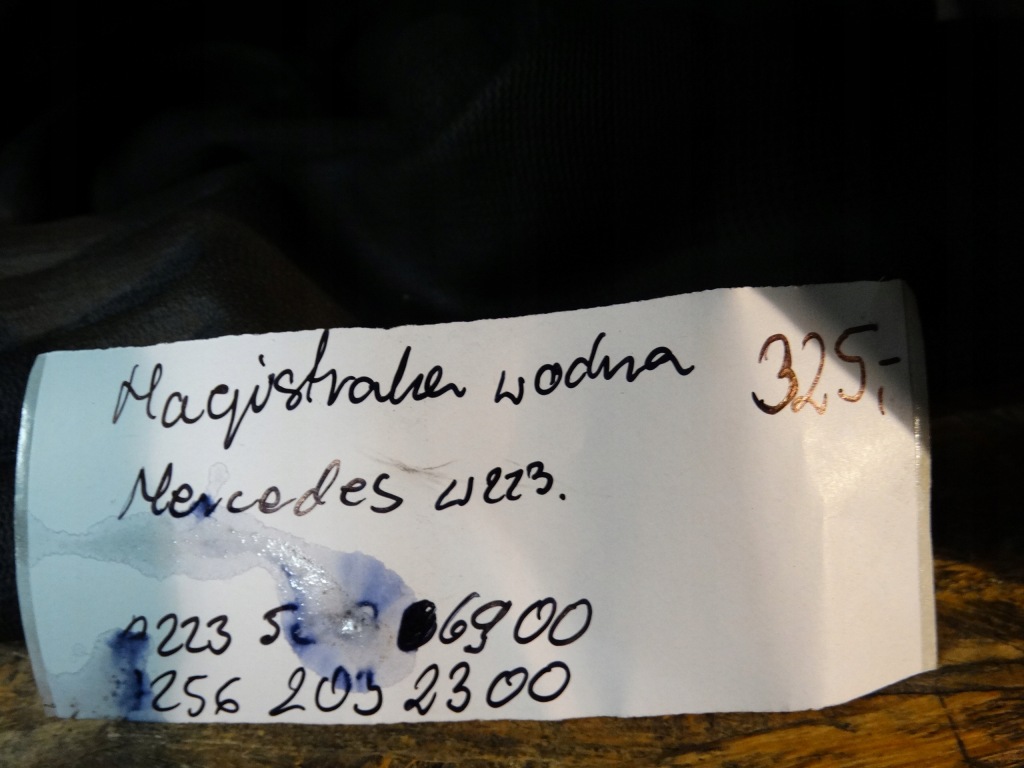 Magistrala wodna 325,-
Mercedes W223.
A223 6900
A256 203 2300